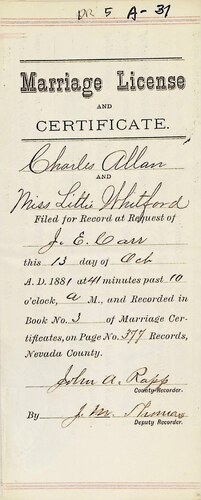 DR 5 A-31
Marriage License
AND
CERTIFICATE.
Charles Allan
AND
Miss Littie Whitford
Filed for Record at Request of
J. E. Carr
this 13 day of Oct
A. D. 1881 at 41 minutes past 10
o'clock, A M., and Recorded in
Book No. 3 of Marriage Cer-
tificates, on Page No. 377 Records,
Nevada County.
John A. Rapp
County Recorder.
By J. M. Thomas
Deputy Recorder.